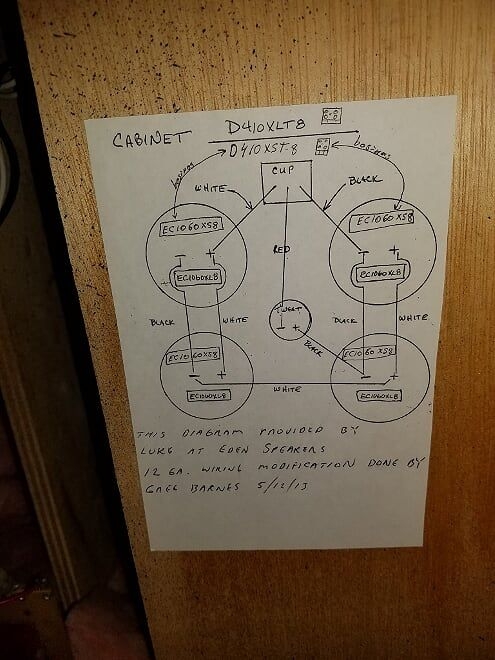 CABINET D410XLT8
D410XST-8
CUP
WHITE
BLACK
EC1060XS8
EC1060XS8
RED
EC1060XL8
EC1060XL8
TWEET
BLACK
WHITE
BLACK
BLACK
WHITE
EC1060XS8
EC1060XS8
WHITE
EC1060XL8
EC1060XL8
THIS DIAGRAM PROVIDED BY
LUKE AT EDEN SPEAKERS
12 GA. WIRING MODIFICATION DONE BY
GREG BARNES 5/12/13